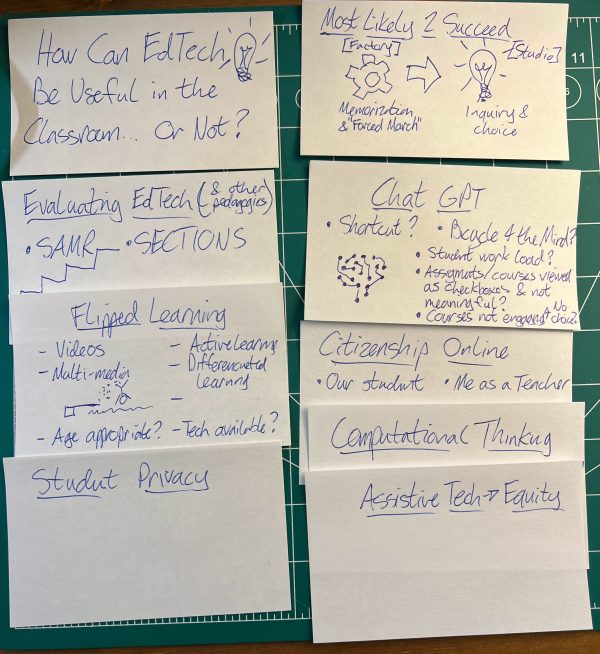 How Can EdTech
Be Useful in the
Classroom... Or Not?
Evaluating EdTech (& other pedagogies)
• SAMR • SECTIONS
Flipped Learning
- Videos
- Multi-media
- Active Learning
- Differentiated Learning
-
- Age appropriate? - Tech available?
Student Privacy
Most Likely 2 Succeed
[Factory] [Studio]
Memorization
& "Forced March"
Inquiry &
choice
Chat GPT
• Shortcut? • Bicycle 4 the Mind?
• Student work load?
• Assignments/courses viewed
as checkboxes & not
meaningful?
• Courses not engaging & No choice?
Citizenship Online
• Our student • Me as a Teacher
Computational Thinking
Assistive Tech → Equity
11